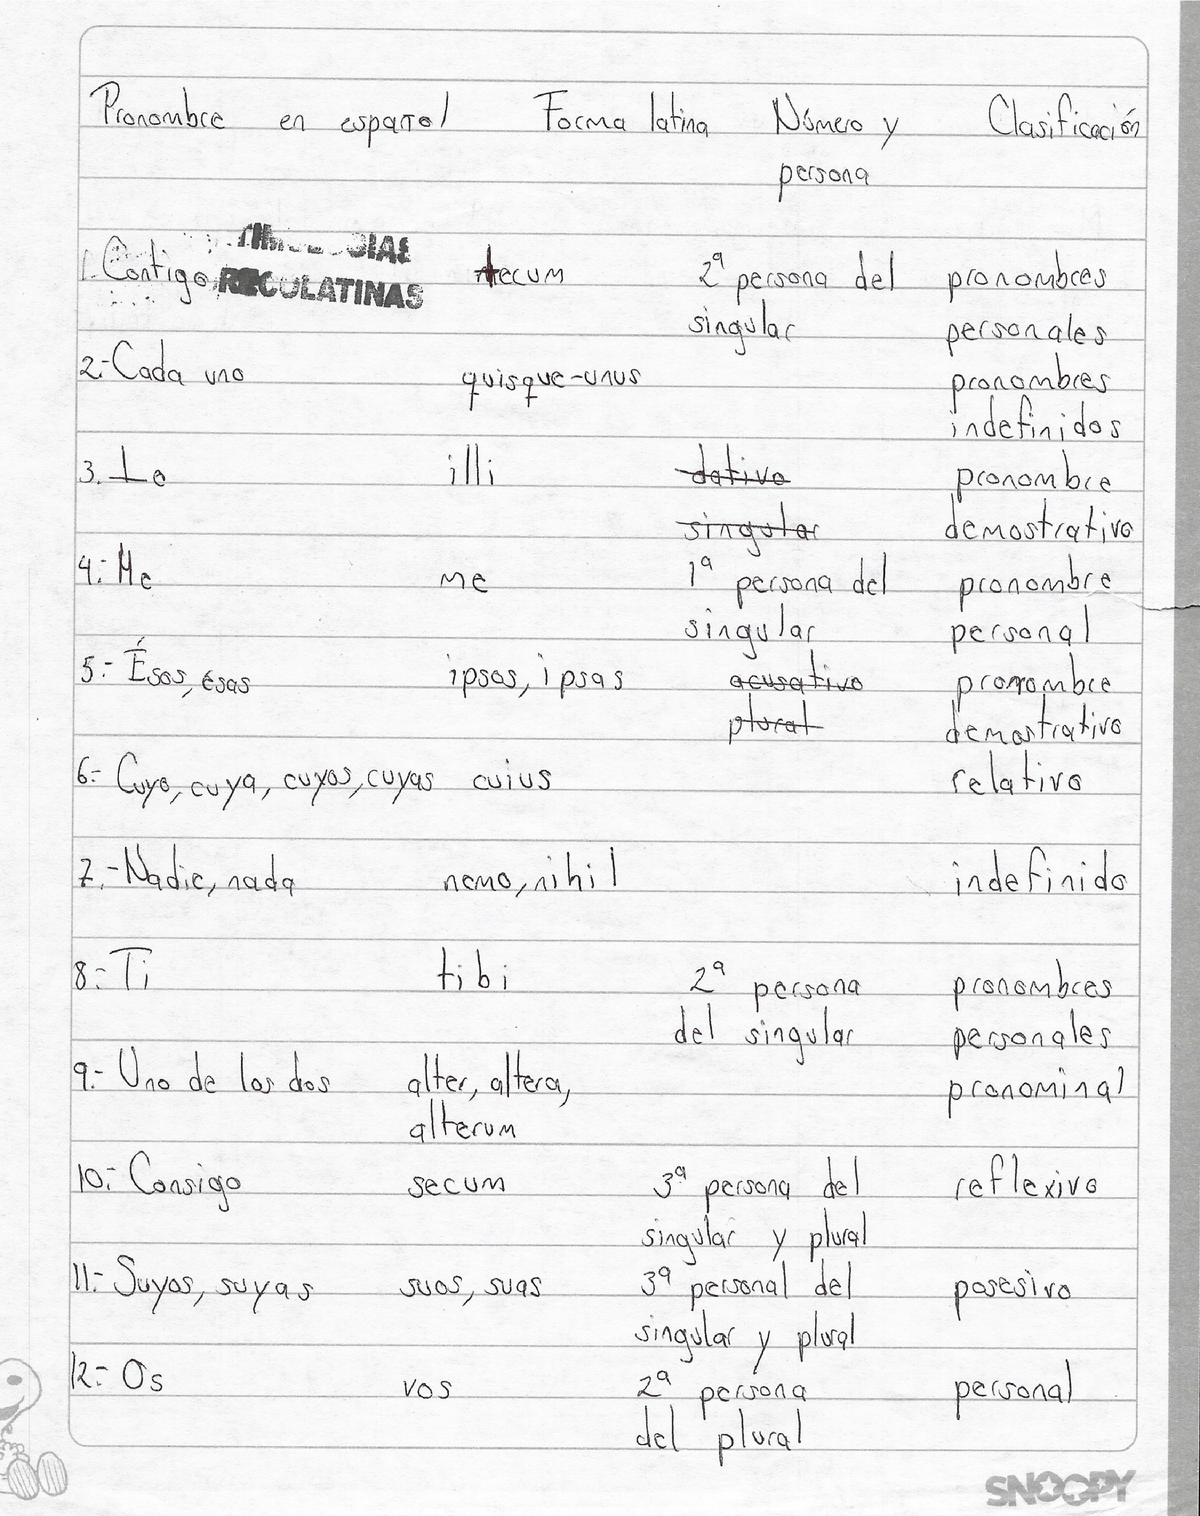 Pronombre en español Forma latina Número y Clasificación
persona
1. Contigo tecum 2ª persona del pronombres
singular personales
2.- Cada uno quisque-unus pronombres
indefinidos
3. Lo illi dativo pronombre
singular demostrativo
4.- Me me 1ª persona del pronombre
singular personal
5.- Ésos, ésas ipsos, ipsas acusativo pronombre
plural demostrativo
6.- Cuyo, cuya, cuyos, cuyas cuius relativo
7.- Nadie, nada nemo, nihil indefinido
8.- Ti tibi 2ª persona pronombres
del singular personales
9.- Uno de los dos alter, altera, pronominal
alterum
10.- Consigo secum 3ª persona del reflexivo
singular y plural
11.- Suyos, suyas suos, suas 3ª personal del posesivo
singular y plural
12.- Os vos 2ª persona personal
del plural
SNOOPY